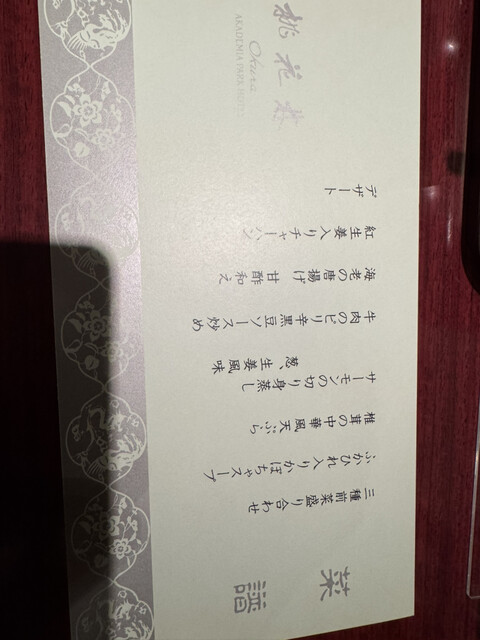 菜譜
三種前菜盛り合わせ
ふかひれ入りかぼちゃスープ
椎茸の中華風天ぷら
サーモンの切り身蒸し
葱、生姜風味
牛肉のピリ辛黒豆ソース炒め
海老の唐揚げ 甘酢和え
紅生姜入りチャーハン
デザート
桃花林
Okura
AKADEMIA PARK HOTEL